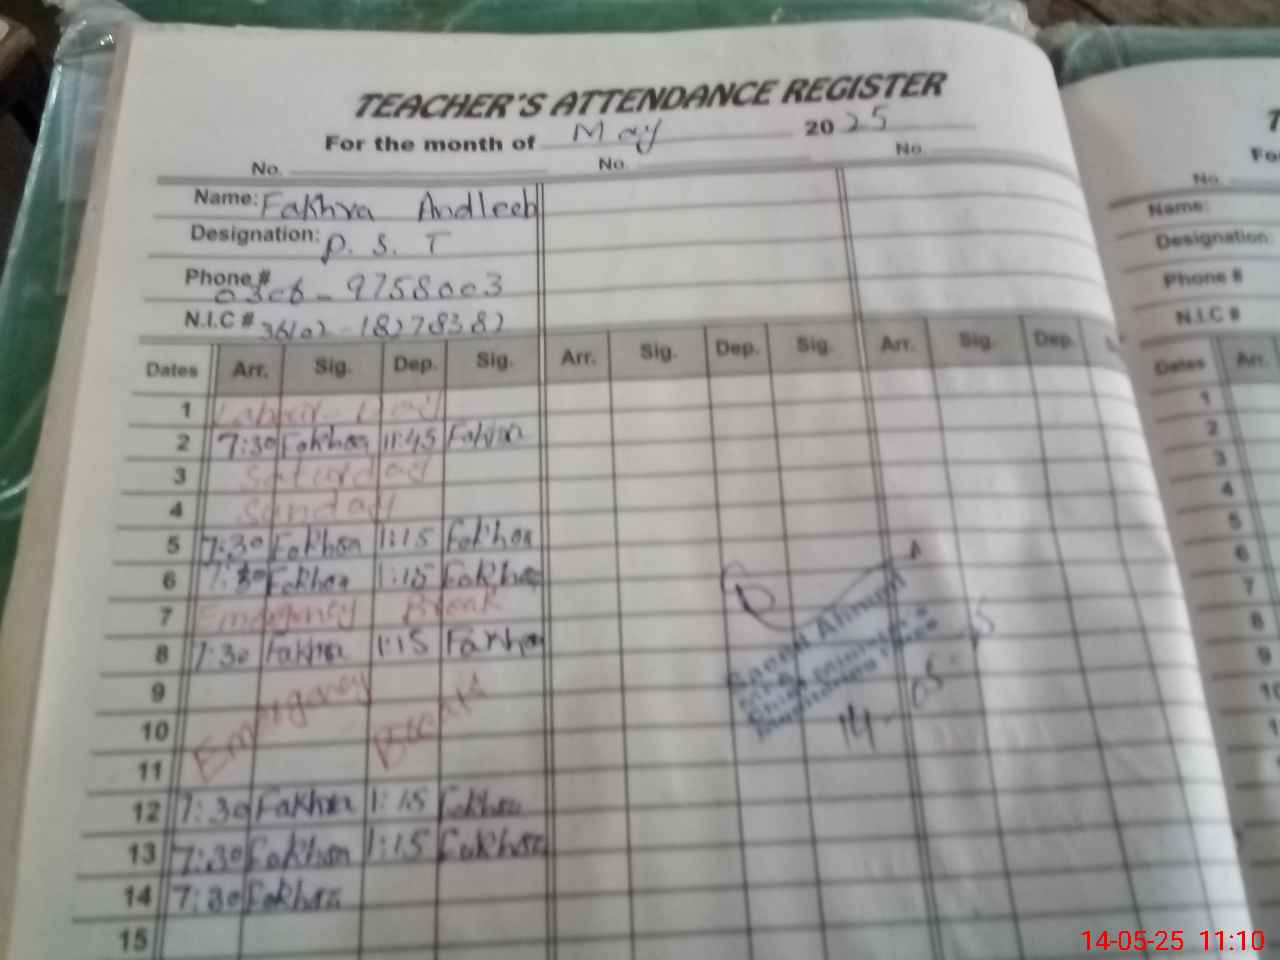 TEACHER'S ATTENDANCE REGISTER
For the month of May 2025
No. No. No.
Name: Fakhra Andleeb
Designation: P. S. T
Phone # 0306-9758003
N.I.C #
Dates Arr. Sig. Dep. Sig. Arr. Sig. Dep. Sig. Arr. Sig. Dep.
1 Labour Day
2 7:30 Fakhra 11:45 Fakhra
3 Saturday
4 Sunday
5 7:30 Fakhra 1:15 Fakhra
6 7:30 Fakhra 1:15 Fakhra
7 Emergency Break
8 7:30 Fakhra 1:15 Fakhra
9
10 Emergency
11
12 7:30 Fakhra 1:15 Fakhra
13 7:30 Fakhra 1:15 Fakhra
14 7:30 Fakhra
15
Saeed Ahmad
14-05-
No.
Name:
Designation
Phone #
N.I.C #
Dates Arr.
1
2
3
4
5
6
7
8
9
10
14-05-25 11:10